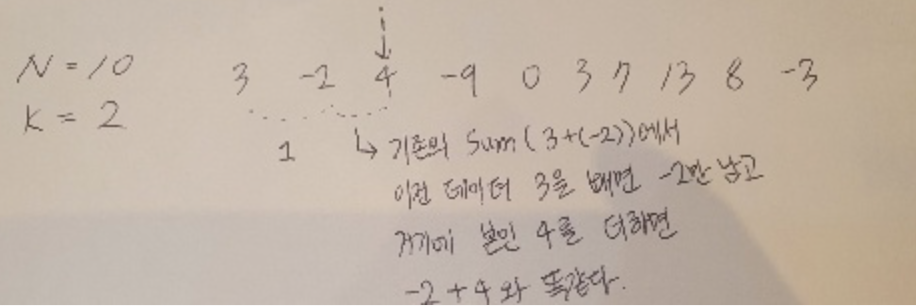 i
N = 10
3 -2 4 -9 0 3 7 13 8 -3
K = 2
1
↳ 기존의 Sum(3+(-2))에서
이전 데이터 3을 빼면 -2만 남고
거기에 본인 4를 더하면
-2+4와 똑같다.